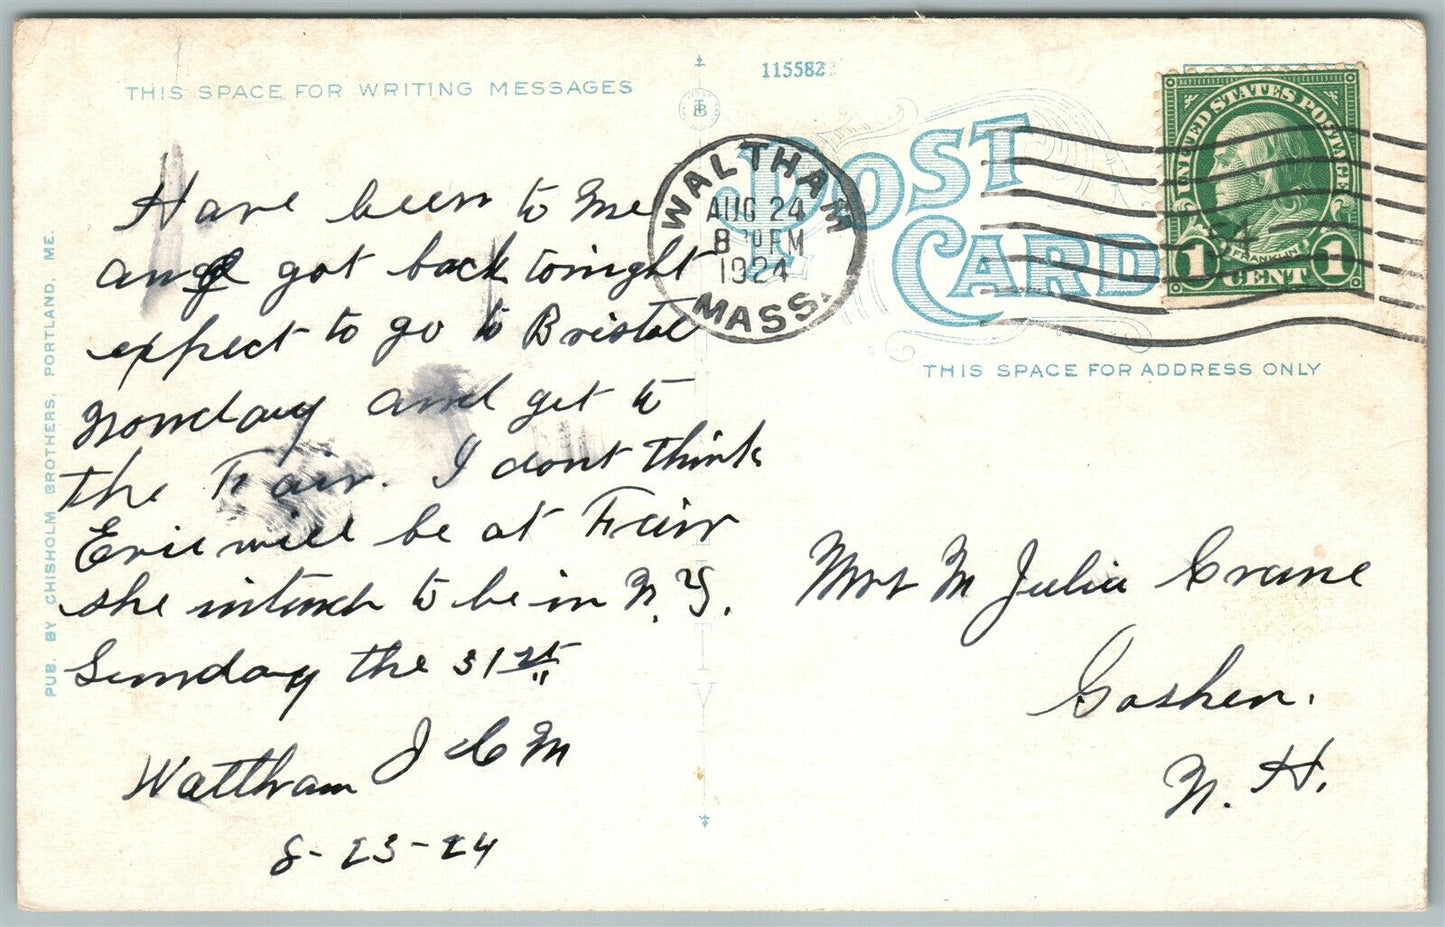 THIS SPACE FOR WRITING MESSAGES
Have been to Me
and got back tonight
expect to go to Bristol
Monday and get to
the Fair. I dont think
Evie will be at Fair
she intends to be in N.Y.
Sunday the 31st
J C M
Waltham
8-23-24
PUB. BY CHISHOLM BROTHERS, PORTLAND, ME.
115582
TB
WALTHAM
AUG 24
8 PM
1924
MASS.
POST
CARD
UNITED STATES POSTAGE
FRANKLIN
1 CENT 1
THIS SPACE FOR ADDRESS ONLY
Mrs M Julia Crane
Goshen.
N. H.